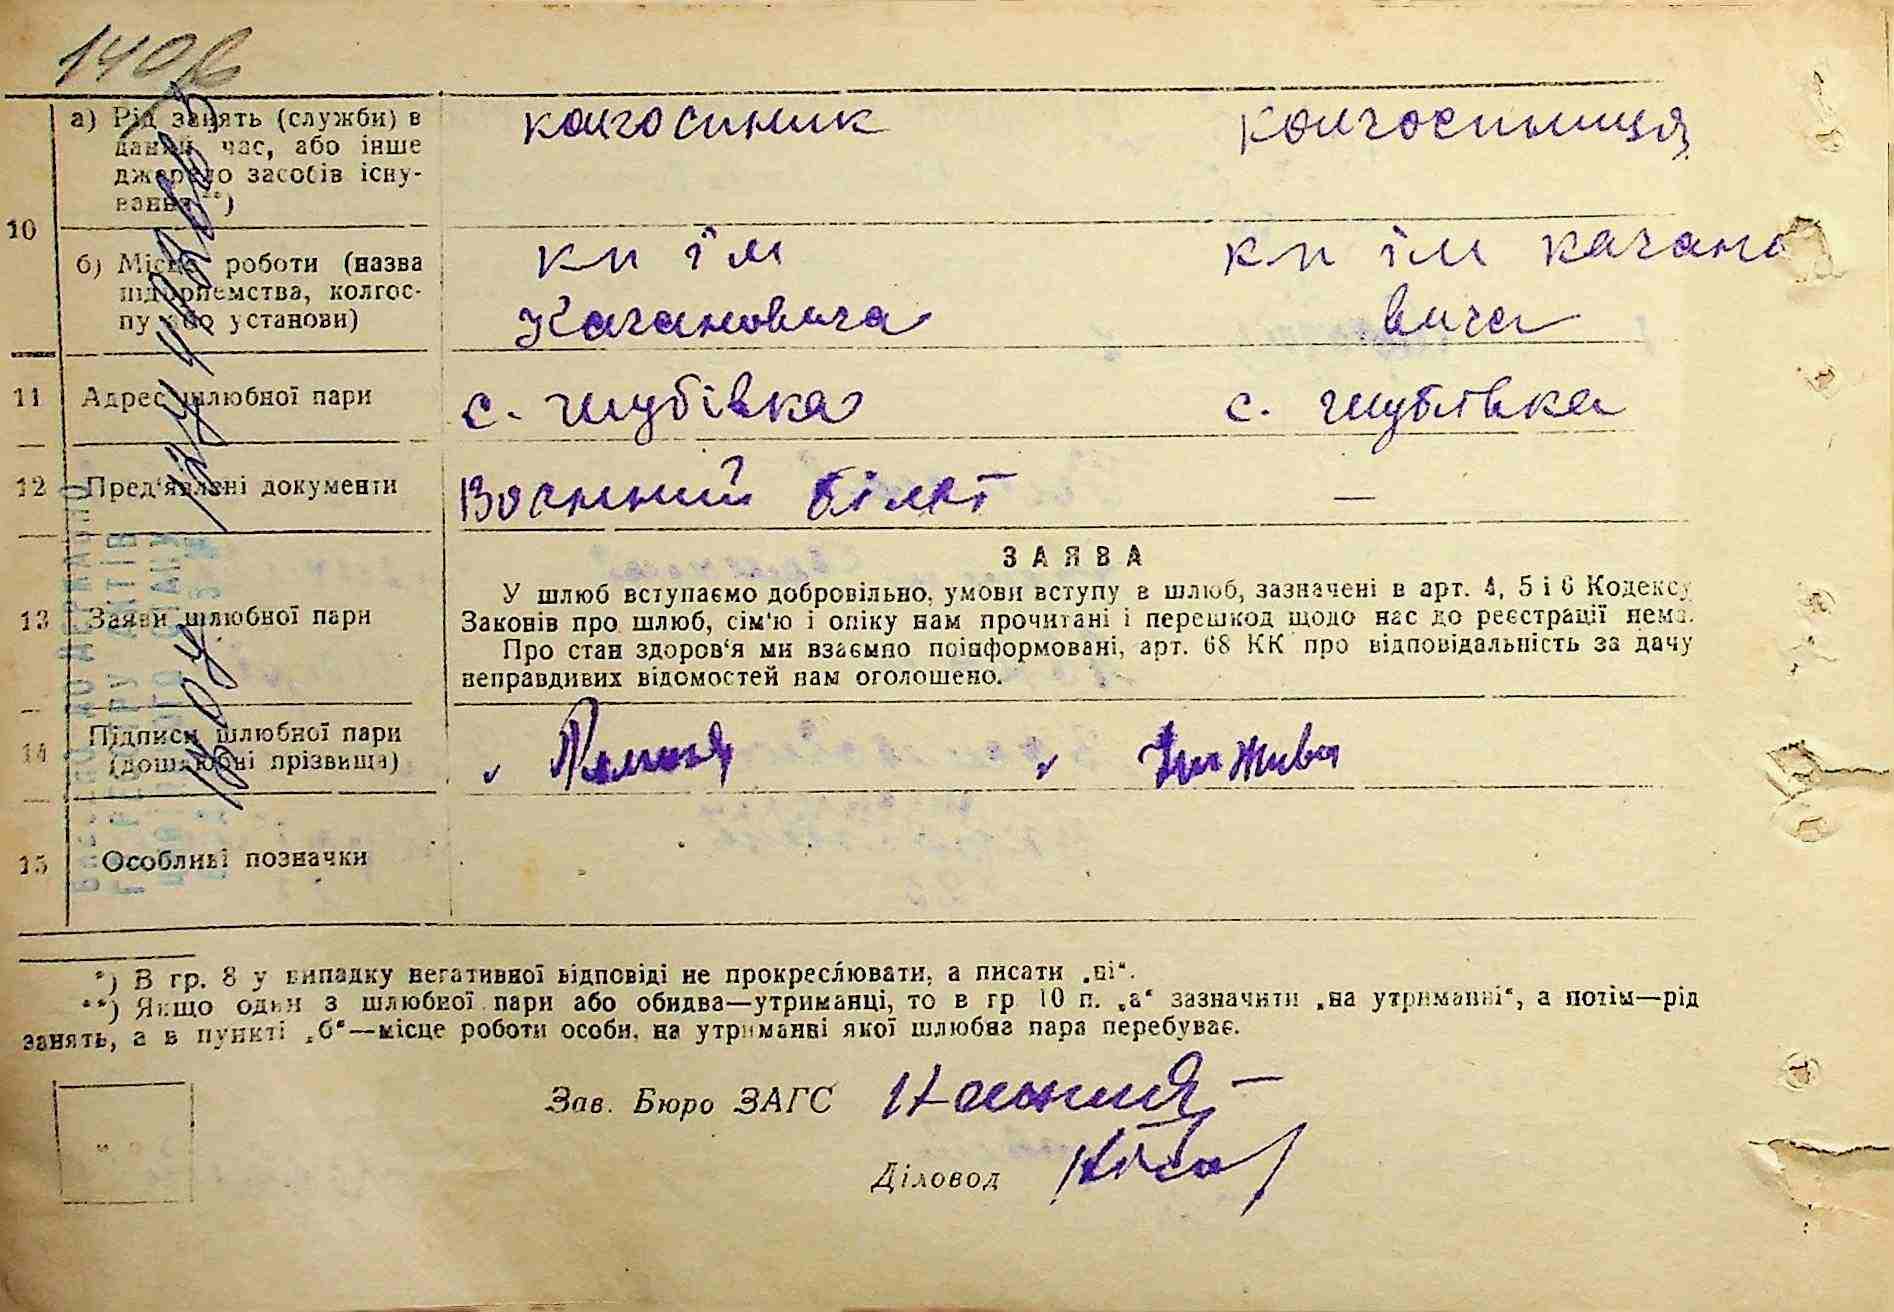 140в
10
а) Рід занять (служби) в
даний час, або інше
джерело засобів існу-
вання **)
колгоспник
колгоспниця
б) Місце роботи (назва
підприємства, колгос-
пу або установи)
кп ім
Кагановича
кп ім кагано
вича
11
Адрес шлюбної пари
с.
с.
12
Пред'явлені документи
Воєнний білет
—
13
Заяви шлюбної пари
ЗАЯВА
У шлюб вступаємо добровільно, умови вступу в шлюб, зазначені в арт. 4, 5 і 6 Кодексу
Законів про шлюб, сім'ю і опіку нам прочитані і перешкод щодо нас до реєстрації нема.
Про стан здоров'я ми взаємно поінформовані, арт. 68 КК про відповідальність за дачу
неправдивих відомостей нам оголошено.
14
Підписи шлюбної пари
(дошлюбні прізвища)
15
Особливі позначки
*) В гр. 8 у випадку негативної відповіді не прокреслювати, а писати „ні“.
**) Якщо один з шлюбної пари або обидва—утриманці, то в гр 10 п. „а“ зазначити „на утриманні“, а потім—рід
занять, а в пункті „б“—місце роботи особи, на утриманні якої шлюбна пара перебуває.
Зав. Бюро ЗАГС
Діловод